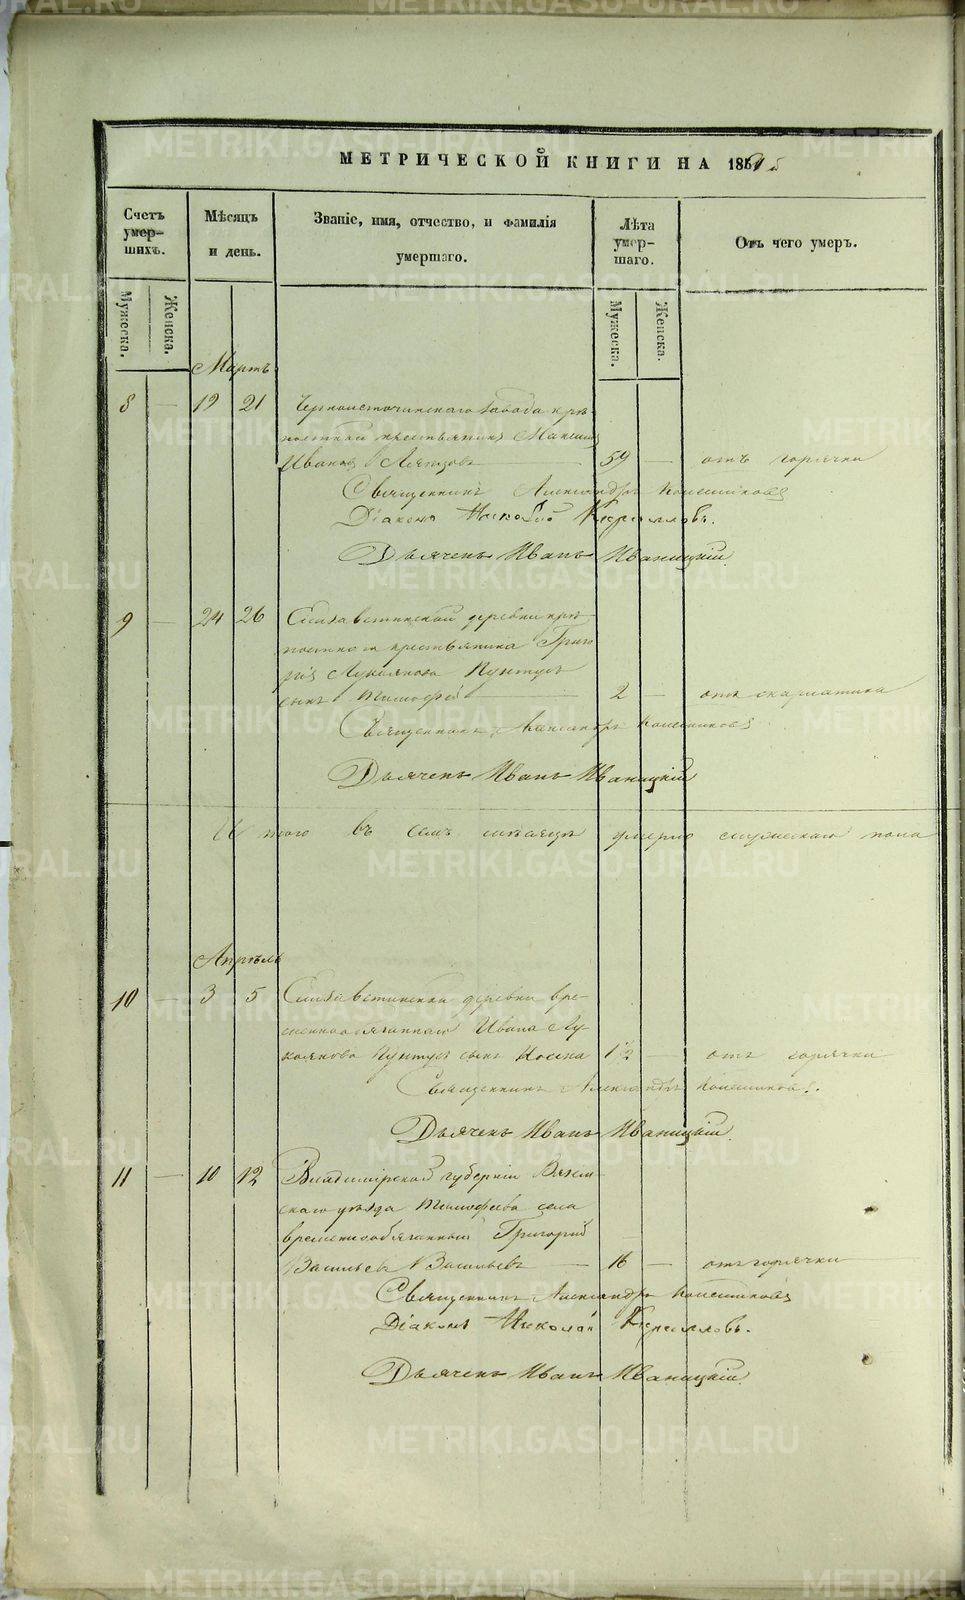 МЕТРИЧЕСКОЙ КНИГИ НА 186
Счетъ умер-шихъ.
Мѣсяцъ и день.
Званіе, имя, отчество, и фамилія умершаго.
Лѣта умер-шаго.
Отъ чего умеръ.
Мужеска.
Женска.
Мужеска.
Женска.
Мартъ
8 — 19 21 Черноисточинскаго завода крѣ-
постный крестьянинъ Максимъ
Ивановъ — 59 — отъ горячки
Священникъ Александръ
Діаконъ Николай Кирилловъ.
Дьячекъ Иванъ Иваницкій.
9 — 24 26 Елизаветинской деревни крѣ-
постнаго крестьянина Григо-
рія Лукоянова
сынъ Тимофей — 2 — отъ скарлатина
Священникъ Александръ
Дьячекъ Иванъ Иваницкій
Итого въ семъ мѣсяцѣ умерло мужескаго пола
Апрѣль
10 — 3 5 Елизаветинской деревни вре-
меннообязаннаго Ивана Лу-
коянова сынъ 1½ — отъ горячки
Священникъ Александръ
Дьячекъ Иванъ Иваницкій.
11 — 10 12 Владимірской губерніи Вязни-
скаго уѣзда села
временнообязанный Григорій
Васильевъ Васильевъ — 16 — отъ горячки
Священникъ Александръ
Діаконъ Николай Кирилловъ.
Дьячекъ Иванъ Иваницкій.
METRIKI.GASO-URAL.RU